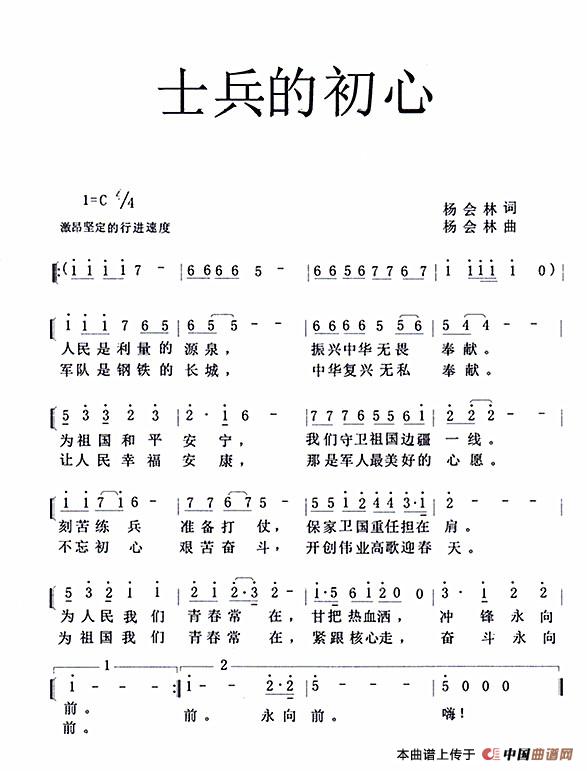 士兵的初心
1=C 4/4
杨会林 词
激昂坚定的行进速度
杨会林 曲
(i i i i 7 - | 6 6 6 6 5 - | 6 6 5 6 7 7 6 7 | i i i i i 0)
i i i 7 6 5 | 6 5 5 - - | 6 6 6 6 6 5 5 6 | 5 4 4 - -
人民是利量的源泉， 振兴中华无畏 奉献。
军队是钢铁的长城， 中华复兴无私 奉献。
5 3 3 2 3 2 | 2 · i 6 - | 7 7 7 6 5 5 6 i | 2 2 2 - -
为祖国和平安宁， 我们守卫祖国边疆一线。
让人民幸福安康， 那是军人最美好的心愿。
i i 7 6 - | 7 7 6 7 5 - | 5 5 i 2 4 4 3 · i | 2 - - -
刻苦练兵 准备打仗， 保家卫国重任担在肩。
不忘初心 艰苦奋斗， 开创伟业高歌迎春天。
5 3 2 2 i | 2 i 2 2 · 3 | i · 5 6 i 2 0 | 3 · i 2 2
为人民我们 青春常在， 甘把热血洒， 冲锋永向
为祖国我们 青春常在， 紧跟核心走， 奋斗永向
1 2
i - - - :| 2 - - 2 · 2 | 5 - - - | 5 0 0 0
前。 前。 永向前。 嗨！
前。
本曲谱上传于 中国曲谱网